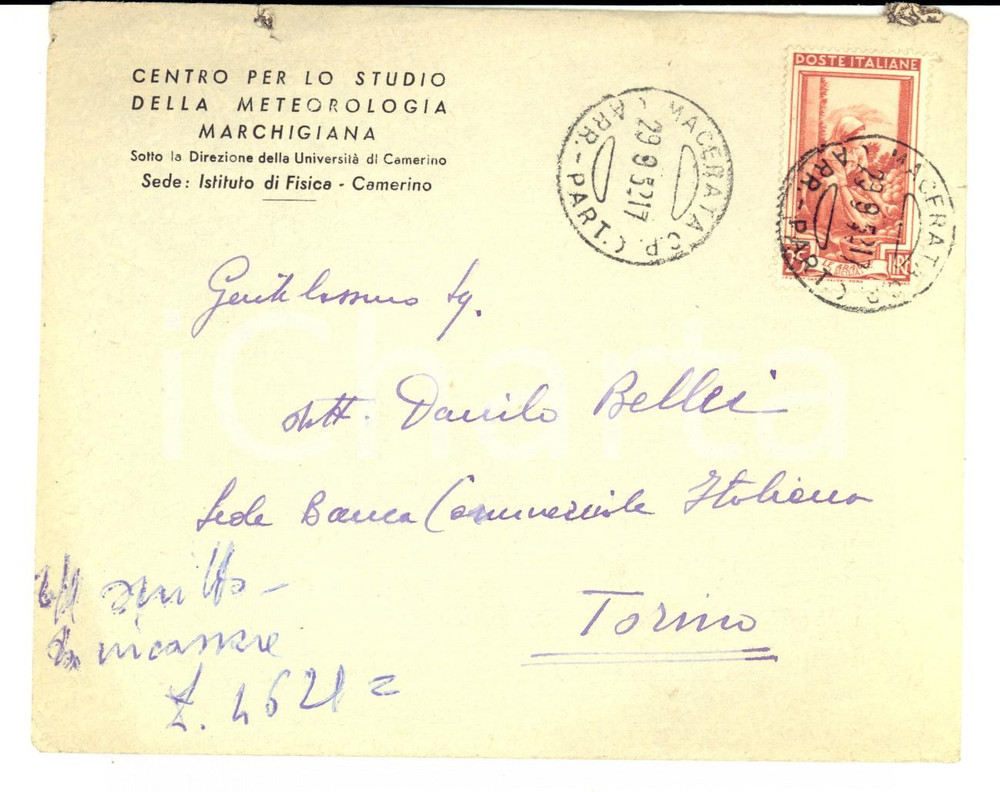 CENTRO PER LO STUDIO
DELLA METEOROLOGIA
MARCHIGIANA
Sotto la Direzione della Università di Camerino
Sede: Istituto di Fisica - Camerino
MACERATA C.P.
(ARR.-PART.)
29 9 52 17
POSTE ITALIANE
MACERATA C.P.
(ARR.-PART.)
29 9 52 17
Gentilissimo Sg.
dott. Danilo Bellei
Sede Banca Commerciale Italiana
Torino
incassare
iCharta